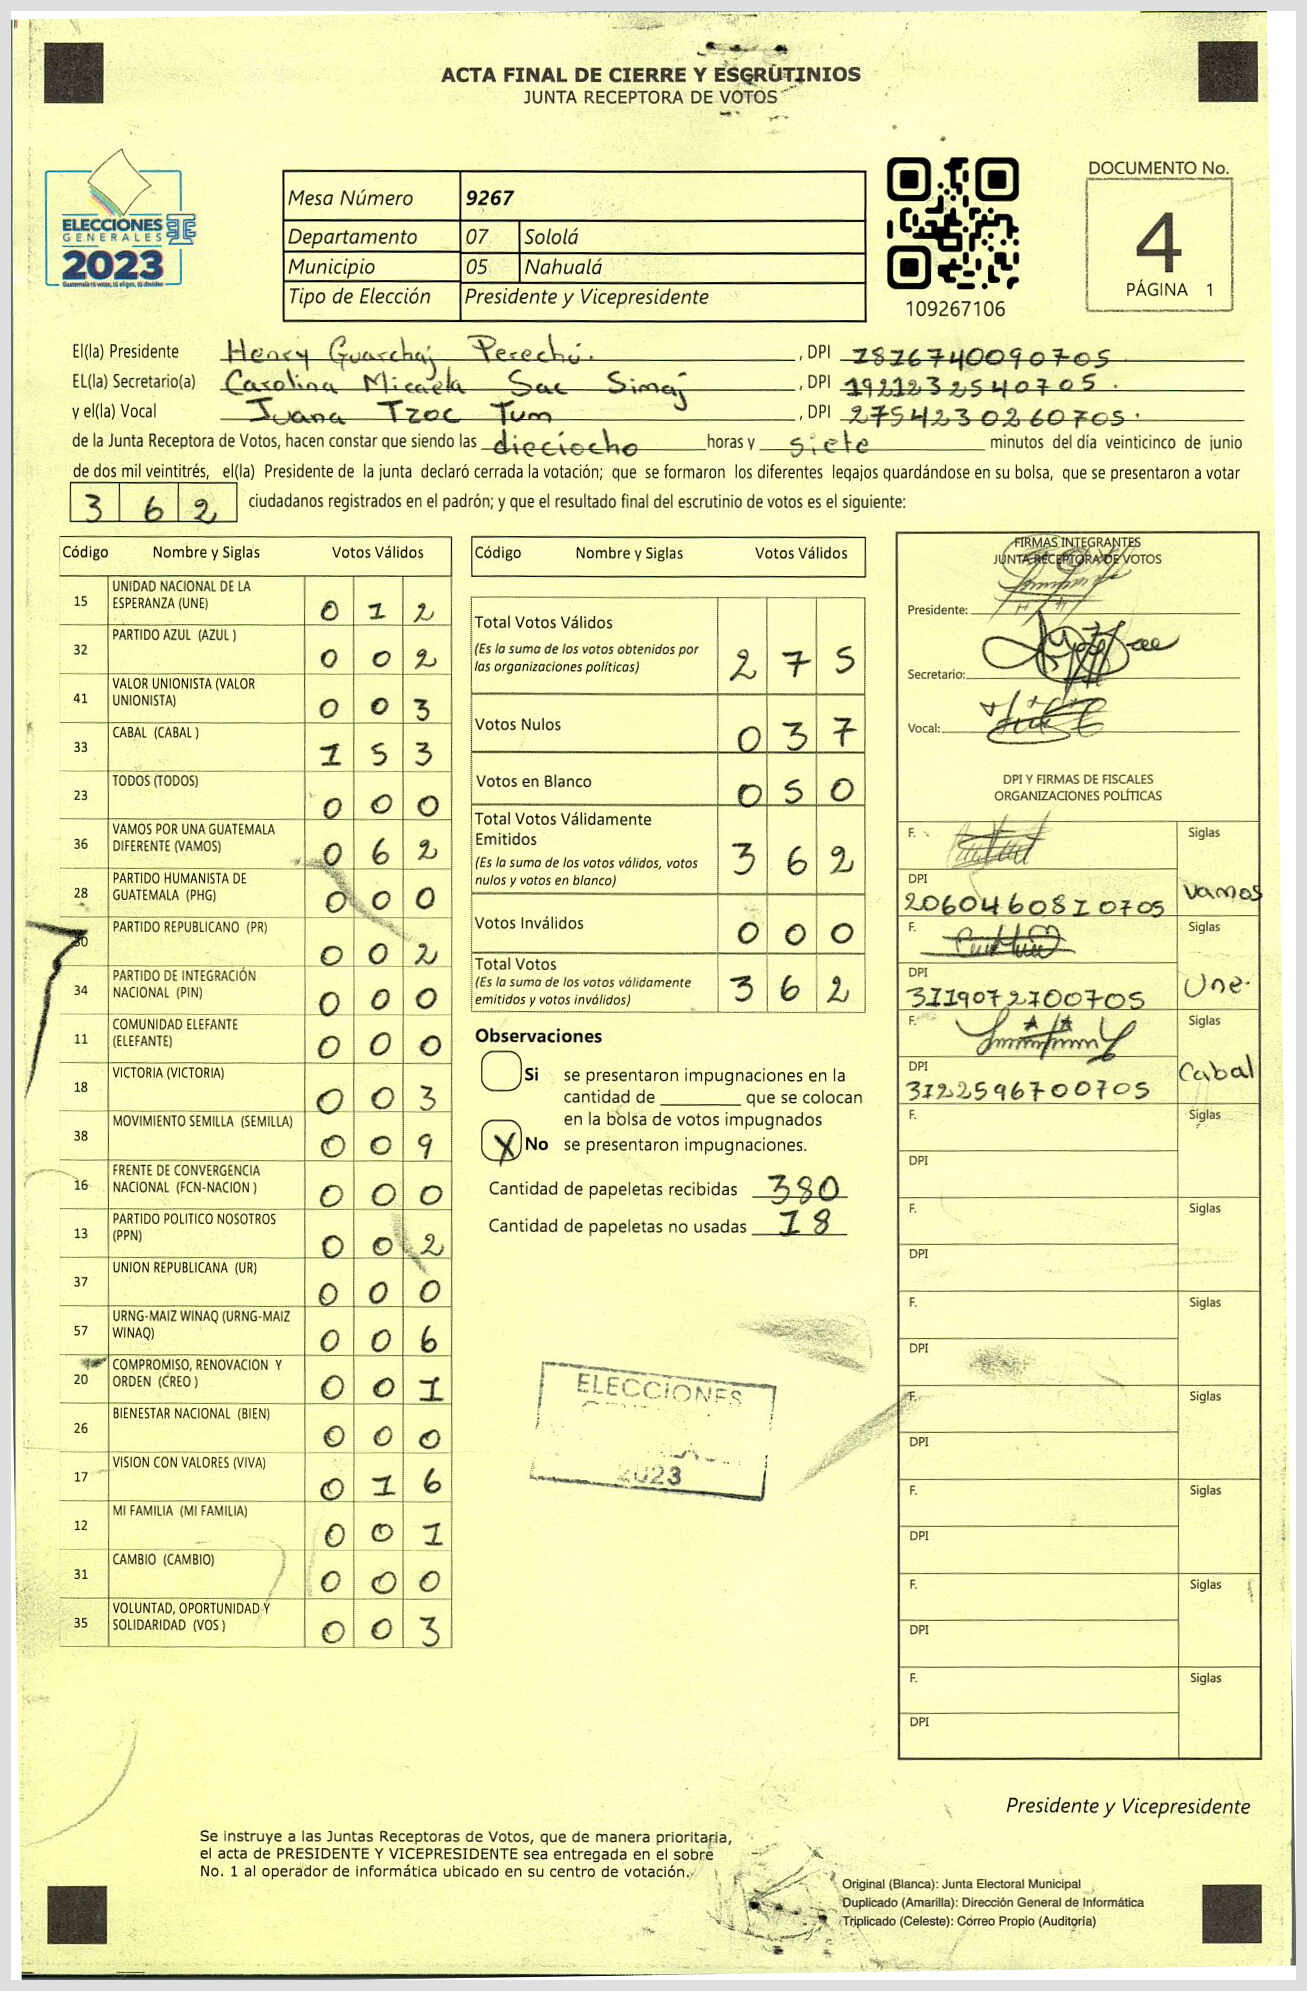 ACTA FINAL DE CIERRE Y ESCRUTINIOS
JUNTA RECEPTORA DE VOTOS
ELECCIONES
GENERALES
2023
Mesa Número 9267
Departamento 07 Sololá
Municipio 05 Nahualá
Tipo de Elección Presidente y Vicepresidente
109267106
DOCUMENTO No.
4
PÁGINA 1
El(la) Presidente Henry Guarchaj Perechú. , DPI 1816740090705
EL(la) Secretario(a) Carolina Micaela Sac Simaj , DPI 1921232540705.
y el(la) Vocal Juana Tzoc Tum , DPI 2754230260705.
de la Junta Receptora de Votos, hacen constar que siendo las dieciocho horas y siete minutos del día veinticinco de junio
de dos mil veintitrés, el(la) Presidente de la junta declaró cerrada la votación; que se formaron los diferentes legajos guardándose en su bolsa, que se presentaron a votar
3 6 2 ciudadanos registrados en el padrón; y que el resultado final del escrutinio de votos es el siguiente:
Código Nombre y Siglas Votos Válidos
15 UNIDAD NACIONAL DE LA ESPERANZA (UNE) 0 1 2
32 PARTIDO AZUL (AZUL ) 0 0 2
41 VALOR UNIONISTA (VALOR UNIONISTA) 0 0 3
33 CABAL (CABAL ) 1 5 3
23 TODOS (TODOS) 0 0 0
36 VAMOS POR UNA GUATEMALA DIFERENTE (VAMOS) 0 6 2
28 PARTIDO HUMANISTA DE GUATEMALA (PHG) 0 0 0
30 PARTIDO REPUBLICANO (PR) 0 0 2
34 PARTIDO DE INTEGRACIÓN NACIONAL (PIN) 0 0 0
11 COMUNIDAD ELEFANTE (ELEFANTE) 0 0 0
18 VICTORIA (VICTORIA) 0 0 3
38 MOVIMIENTO SEMILLA (SEMILLA) 0 0 9
16 FRENTE DE CONVERGENCIA NACIONAL (FCN-NACION ) 0 0 0
13 PARTIDO POLITICO NOSOTROS (PPN) 0 0 2
37 UNION REPUBLICANA (UR) 0 0 0
57 URNG-MAIZ WINAQ (URNG-MAIZ WINAQ) 0 0 6
20 COMPROMISO, RENOVACION Y ORDEN (CREO ) 0 0 1
26 BIENESTAR NACIONAL (BIEN) 0 0 0
17 VISION CON VALORES (VIVA) 0 1 6
12 MI FAMILIA (MI FAMILIA) 0 0 1
31 CAMBIO (CAMBIO) 0 0 0
35 VOLUNTAD, OPORTUNIDAD Y SOLIDARIDAD (VOS ) 0 0 3
Código Nombre y Siglas Votos Válidos
Total Votos Válidos 2 7 5
(Es la suma de los votos obtenidos por
las organizaciones políticas)
Votos Nulos 0 3 7
Votos en Blanco 0 5 0
Total Votos Válidamente
Emitidos 3 6 2
(Es la suma de los votos válidos, votos
nulos y votos en blanco)
Votos Inválidos 0 0 0
Total Votos 3 6 2
(Es la suma de los votos válidamente
emitidos y votos inválidos)
Observaciones
Si se presentaron impugnaciones en la
cantidad de ________ que se colocan
en la bolsa de votos impugnados
X No se presentaron impugnaciones.
Cantidad de papeletas recibidas 380
Cantidad de papeletas no usadas 18
ELECCIONES
2023
FIRMAS INTEGRANTES
JUNTA RECEPTORA DE VOTOS
Presidente:
Secretario:
Vocal:
DPI Y FIRMAS DE FISCALES
ORGANIZACIONES POLÍTICAS
F. Siglas
DPI 2060460810705 Vamos
F. Siglas
DPI 3119072700705 Une.
F. Siglas
DPI 3122596700705 Cabal
F. Siglas
DPI
F. Siglas
DPI
F. Siglas
DPI
F. Siglas
DPI
F. Siglas
DPI
F. Siglas
DPI
F. Siglas
DPI
Presidente y Vicepresidente
Se instruye a las Juntas Receptoras de Votos, que de manera prioritaria,
el acta de PRESIDENTE Y VICEPRESIDENTE sea entregada en el sobre
No. 1 al operador de informática ubicado en su centro de votación.
Original (Blanca): Junta Electoral Municipal
Duplicado (Amarilla): Dirección General de Informática
Triplicado (Celeste): Correo Propio (Auditoría)